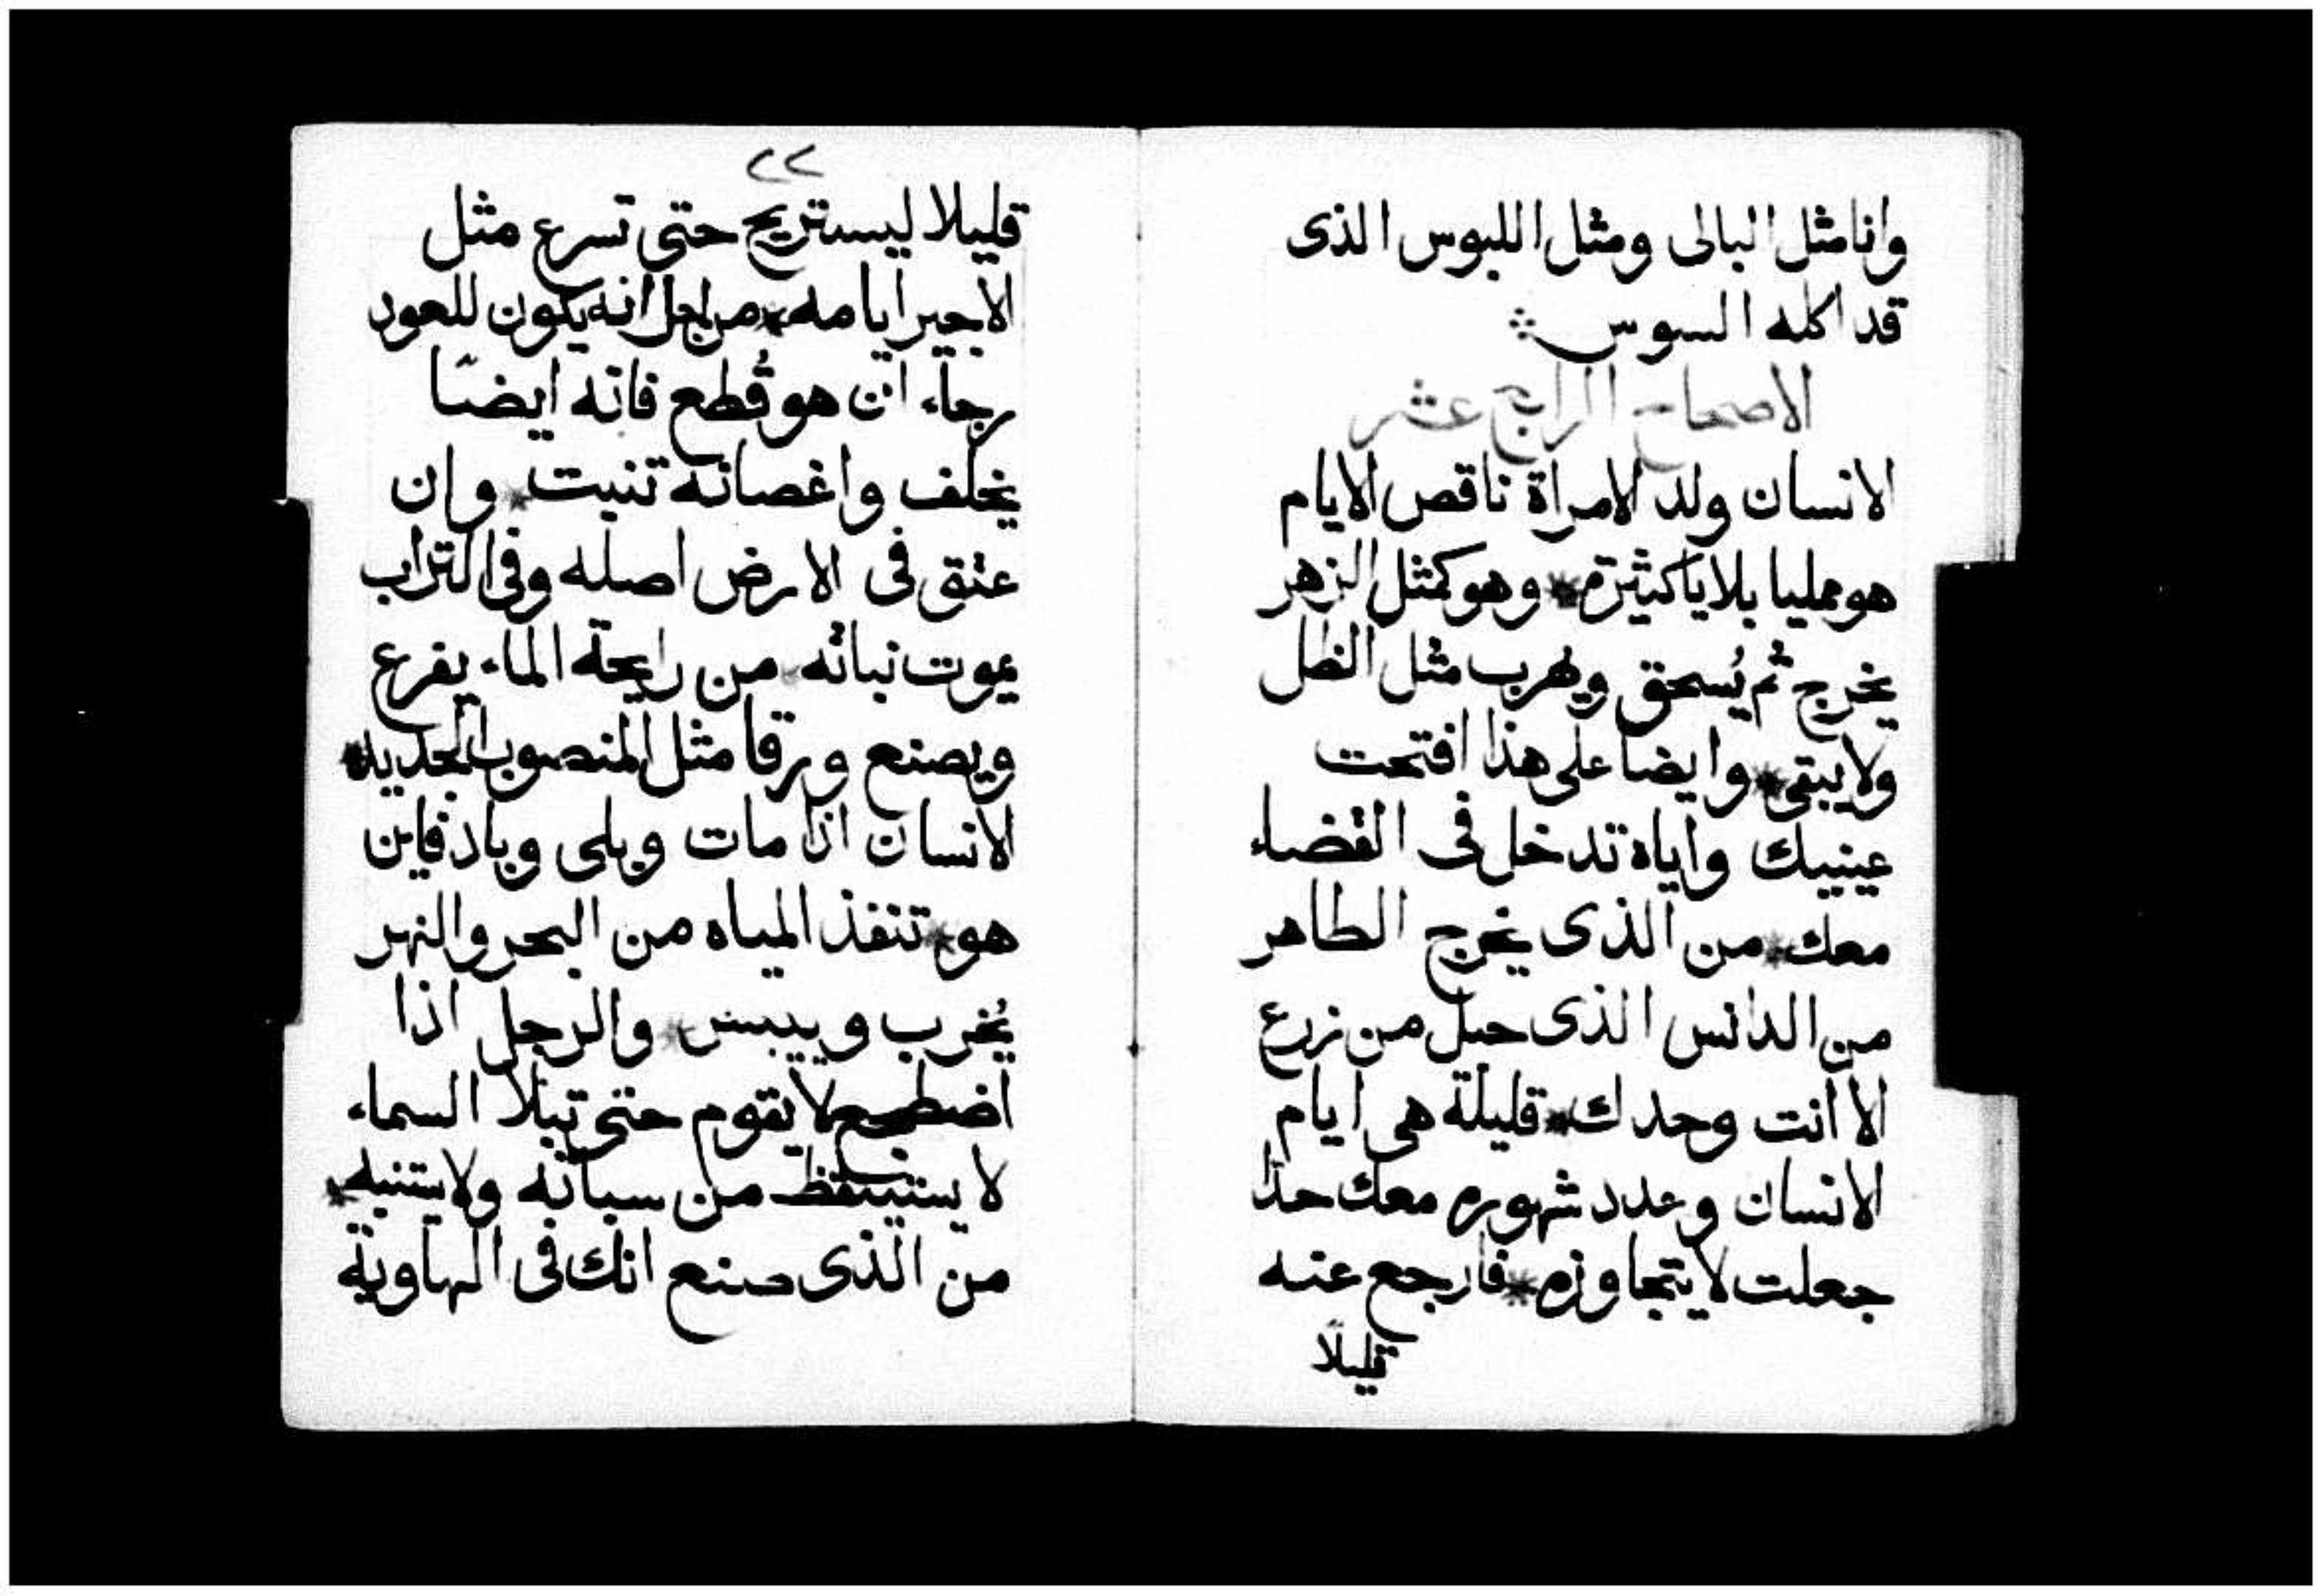 وانا مثل البالى ومثل اللبوس الذى
قد اكله السوس
الاصحاح الرابع عشر
الانسان ولد الامراة ناقص الايام
هو مملیا بلايا كثيرة * وهو كمثل الزهر
يخرج ثم يُسحق ويهرب مثل الظل
ولا يبقى * وايضا على هذا افتحت
عينيك واياه تدخل فى القضاء
معك * من الذى يخرج الطاهر
من الدانس الذى حبل من زرع
الا انت وحدك * قليلة هى ايام
الانسان وعدد شهوره معك حدا
جعلت لا يتجاوزه * فارجع عنه
قليلا
٢٢
قليلا ليستريح حتى تسرع مثل
الاجير ايامه * من اجل انه يكون للعود
رجاء ان هو قُطع فانه ايضا
يخلف واغصانه تنبت * وان
عتق فى الارض اصله وفى التراب
يموت نباته * من رايحة الماء يفرع
ويصنع ورقا مثل المنصوب الجديد *
الانسان اذا مات وبلى وباد فاين
هو * تنفذ المياه من البحر والنهر
يُخرب وييبس * والرجل اذا
اضطجع لا يقوم حتى تبلا السماء
لا يستيقظ من سباته ولا يستنبه *
من الذى صنع انك فى الهاوية